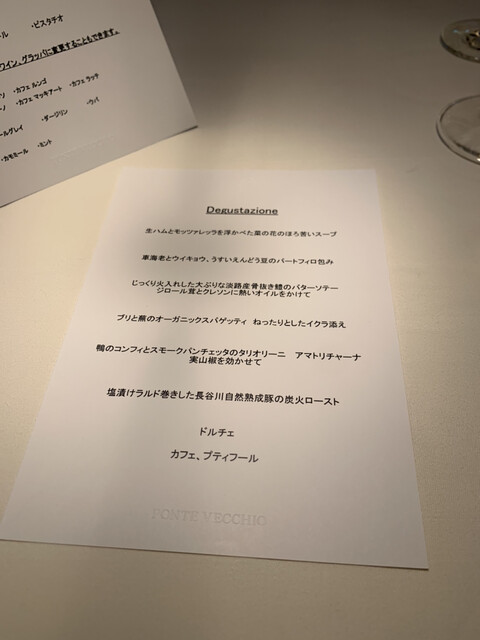 ・ピスタチオ
ワイン、グラッパに変更することもできます。
・カフェ ルンゴ
・カフェ マッキアート ・カフェ ラッテ
ールグレイ ・ダージリン ・ウバ
・カモミール ・ミント
Degustazione
生ハムとモッツァレッラを浮かべた菜の花のほろ苦いスープ
車海老とウイキョウ、うすいえんどう豆のパートフィロ包み
じっくり火入れした大ぶりな淡路産骨抜き鱧のバターソテー
ジロール茸とクレソンに熱いオイルをかけて
ブリと蕪のオーガニックスパゲッティ ねっとりとしたイクラ添え
鴨のコンフィとスモークパンチェッタのタリオリーニ アマトリチャーナ
実山椒を効かせて
塩漬けラルド巻きした長谷川自然熟成豚の炭火ロースト
ドルチェ
カフェ、プティフール
PONTE VECCHIO